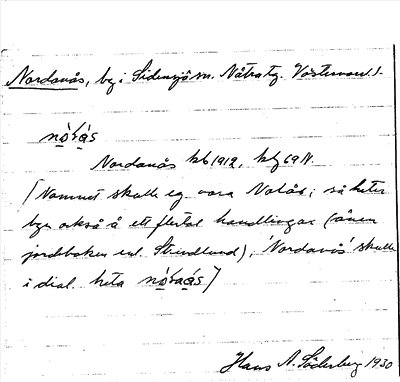 Nordanås, by i Sidensjö sn. Nätra tg. Västernorrl. l.
nórás
Nordanås kb 1912, kby 1911.
[Namnet skulle eg. vara Nolås; så heter
byn också å ett flertal handlingar (även
jordboken enl. Strindlund), 'Nordanås' skulle
i dial. heta nóraás]
Hans A. Söderberg 1930